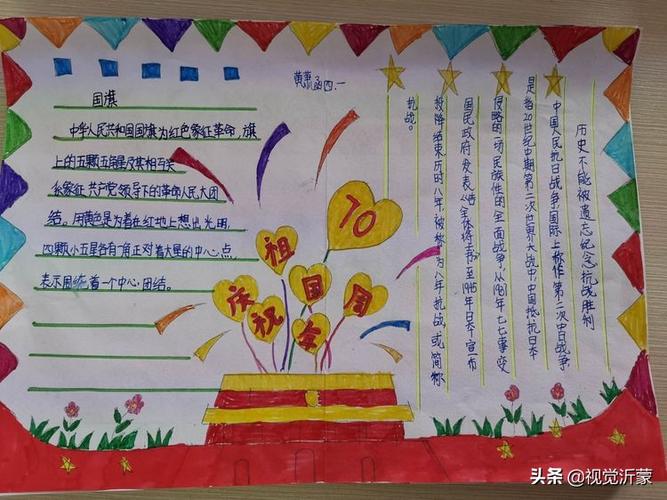 国旗
中华人民共和国国旗为红色象征革命,旗
上的五颗五角星及其相互关
系象征共产党领导下的革命人民大团
结。用黄色是为着在红地上想出光明,
四颗小五星各有角正对着大星的中心点,
表示周绕着一个中心团结。
四.一
70
祖
国
周
庆
祝
年
历史不能被遗忘纪念抗战胜利
中国人民抗日战争,国际上称作第二次中日战争
是指20世纪中期第二次世界大战中,中国抵抗日本
侵略的一场民族性的全面战争,从年七七事变
国民政府发表《告全体将士书》至1945年日本宣布
投降结束历时八年,被称为八年抗战或简称
抗战。
头条 @视觉沂蒙